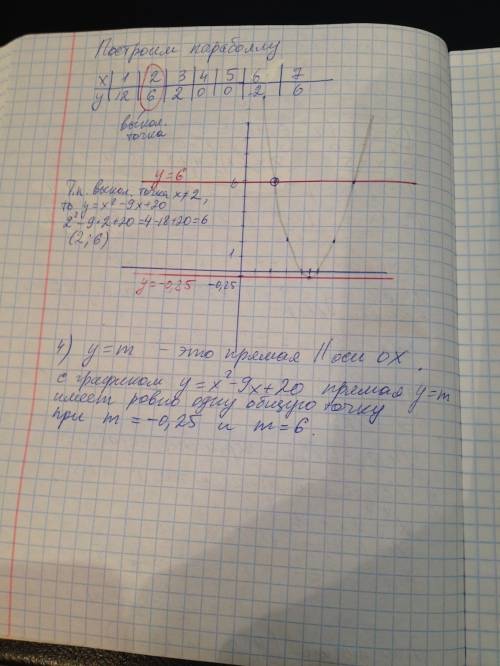 Построим параболлу
x 1 2 3 4 5 6 7
y 12 6 2 0 0 2 6
выкол.
точка
y=6
6
Т.к. выкол. точка x≠2,
то y=x²-9x+20
2²-9•2+20=4-18+20=6
(2;6)
1
y=-0,25 -0,25
4) y=m - это прямая || оси OX.
с графиком y=x²-9x+20 прямая y=m
имеет ровно одну общую точку
при m=-0,25 и m=6.